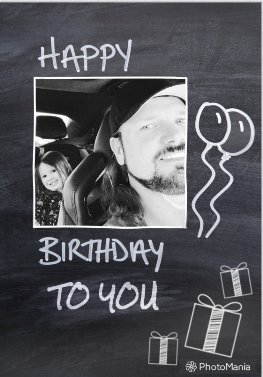 HAPPY
BIRTHDAY
TO YOU
PhotoMania